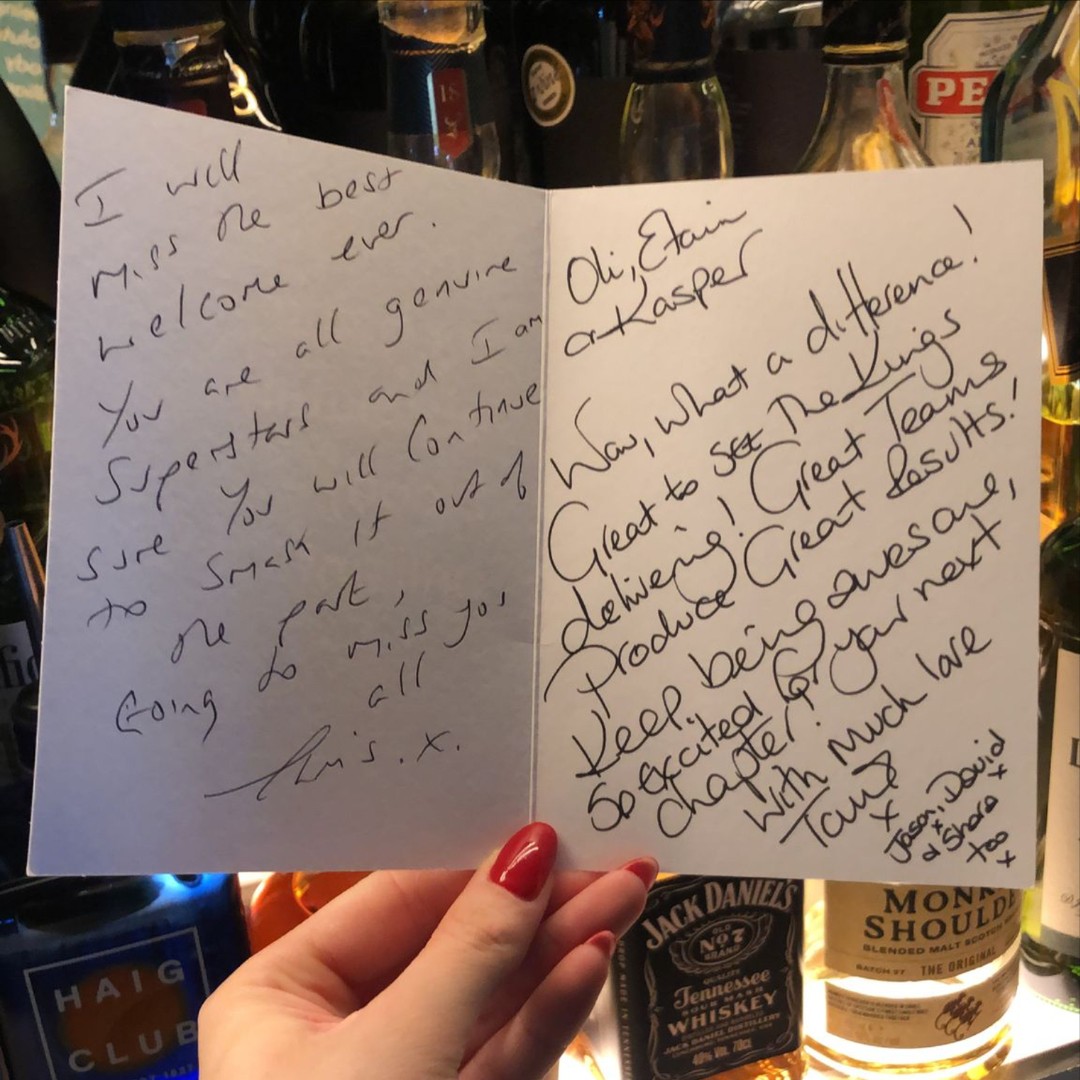 I will
miss the best
welcome ever.
You are all genuine
Superstars and I am
sure you will continue
to smash it out of
the park,
Going to miss you
all
Chris. x.
Oli, Etain
& Kasper
Wow, what a difference!
Great to see The Kings
delivering! Great Teams
Produce Great Results!
Keep being awesome,
So excited for your next
chapter!
With much love
x
Jason, David
x
& Shara
too
x
PE
18
HAIG
CLUB
JACK DANIEL'S
OLD
No. 7
BRAND
QUALITY
Tennessee
SOUR MASH
WHISKEY
JACK DANIEL DISTILLERY
40% Vol. 70cl
MONK
SHOULDE
BLENDED MALT SCOTCH
BATCH 27 THE ORIGINAL